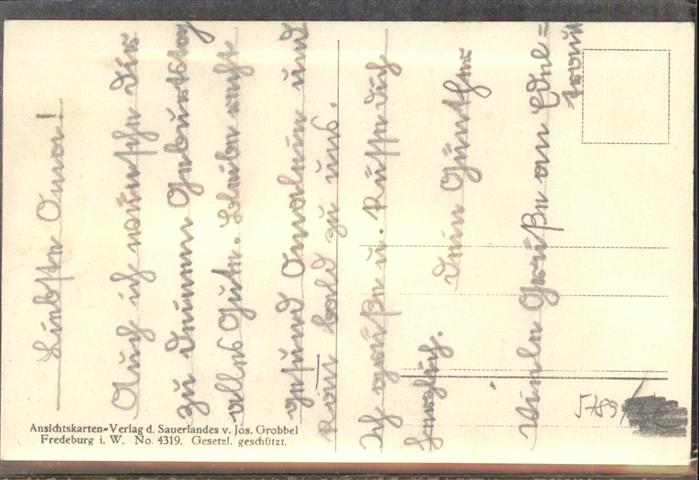 Liebste Oma!
Auch ich wünsche Dir
zu Deinem Geburtstag
alles Gute. Bleibe recht
gesund Omalein und
kom bald zu uns.
Ich grüße u. küsse dich
herzlich.
Dein Günther
Viele Grüße an Edel=
traut
Ansichtskarten-Verlag d. Sauerlandes v. Jos. Grobbel
Fredeburg i. W. No. 4319. Gesetzl. geschützt.